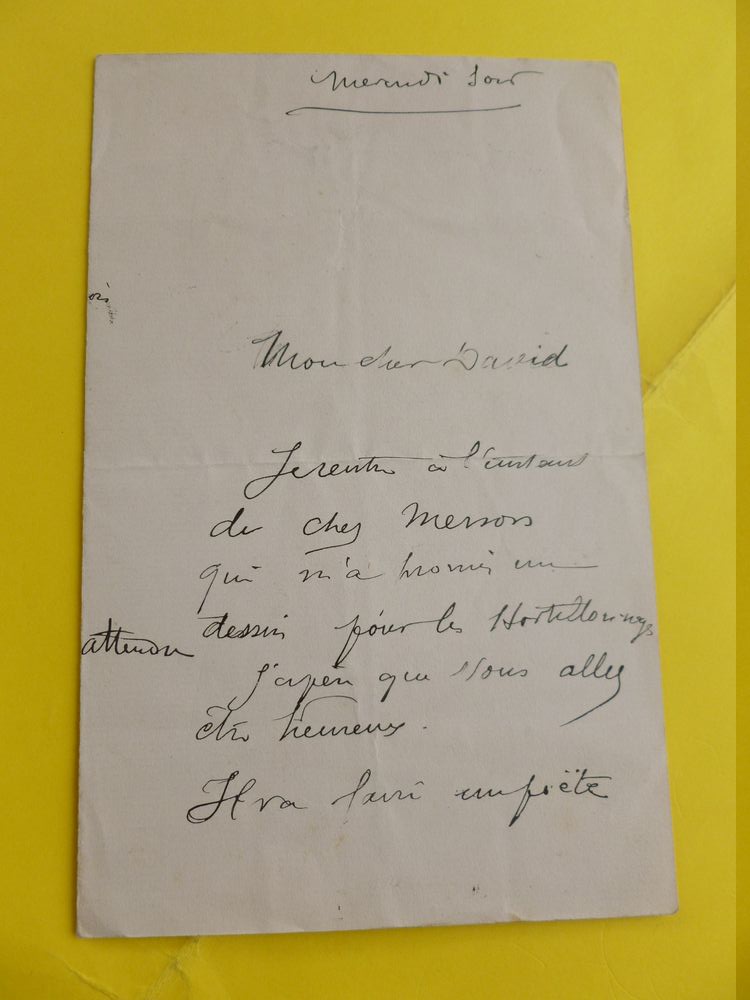 Mercredi Soir
Mon cher David
Je rentre à l'instant
de chez Merson
qui m'a promis un
dessin pour les
attendre
J'espère que vous allez
être heureux.
Il va faire un poëte